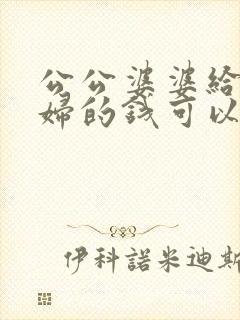 公公婆婆给
婦的钱可以
伊科諾米迪斯